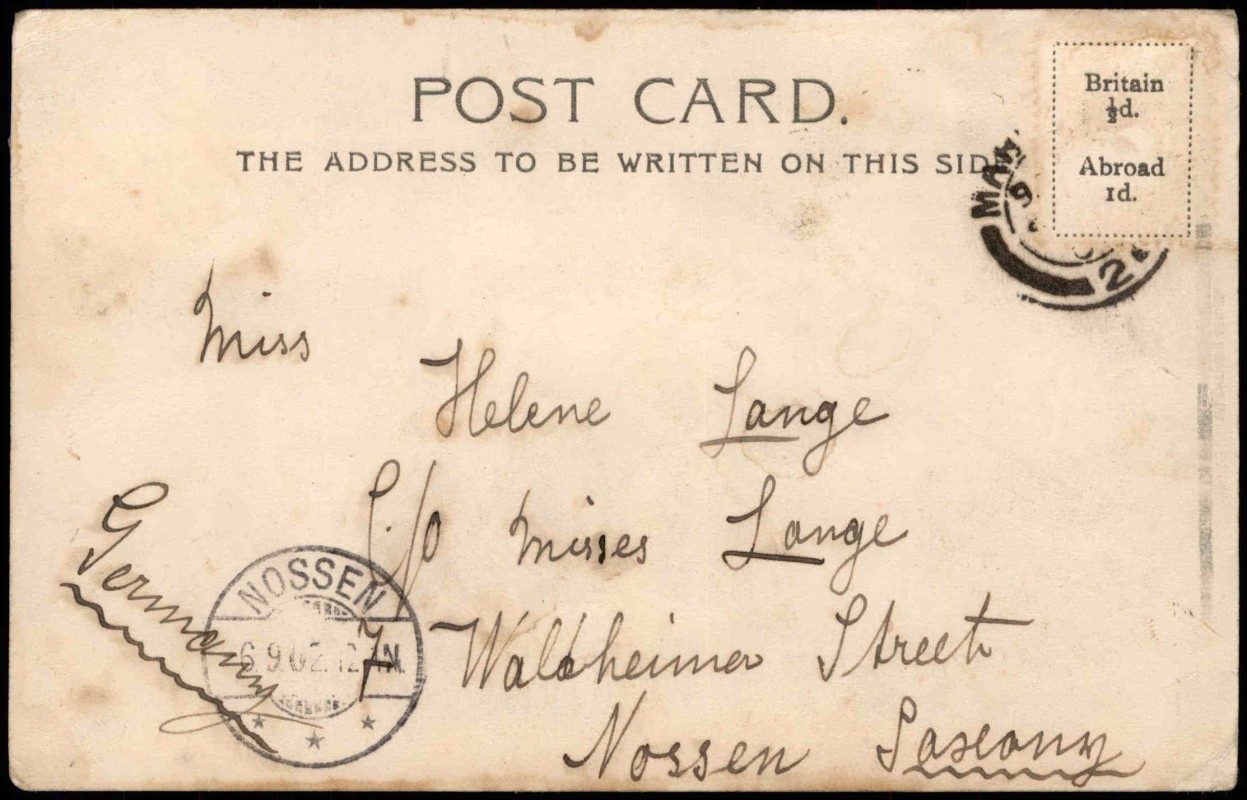 POST CARD.
THE ADDRESS TO BE WRITTEN ON THIS SIDE
Britain
½d.
Abroad
1d.
Miss
Helene Lange
C/o Misses Lange
7 Waldheimer Street
Nossen Saxony
Germany
NOSSEN
6 9 02 12 N.